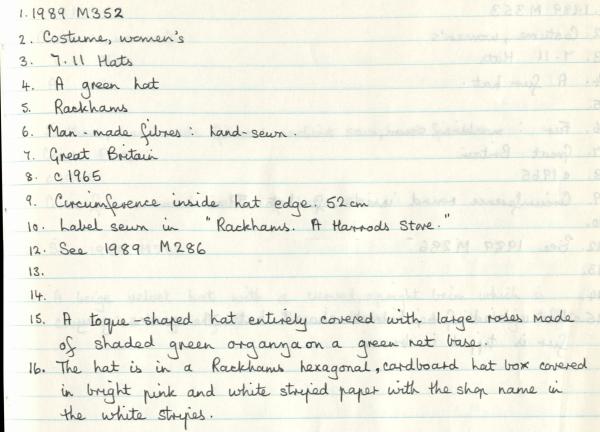 1. 1989 M352
2. Costume, women's
3. 7.11 Hats
4. A green hat
5. Rackhams
6. Man-made fibres: hand-sewn.
7. Great Britain
8. c1965
9. Circumference inside hat edge. 52cm
10. Label sewn in "Rackhams. A Harrods Store."
12. See 1989 M286
13.
14.
15. A toque-shaped hat entirely covered with large roses made
of shaded green organza on a green net base.
16. The hat is in a Rackhams hexagonal, cardboard hat box covered
in bright pink and white striped paper with the shop name in
the white stripes.